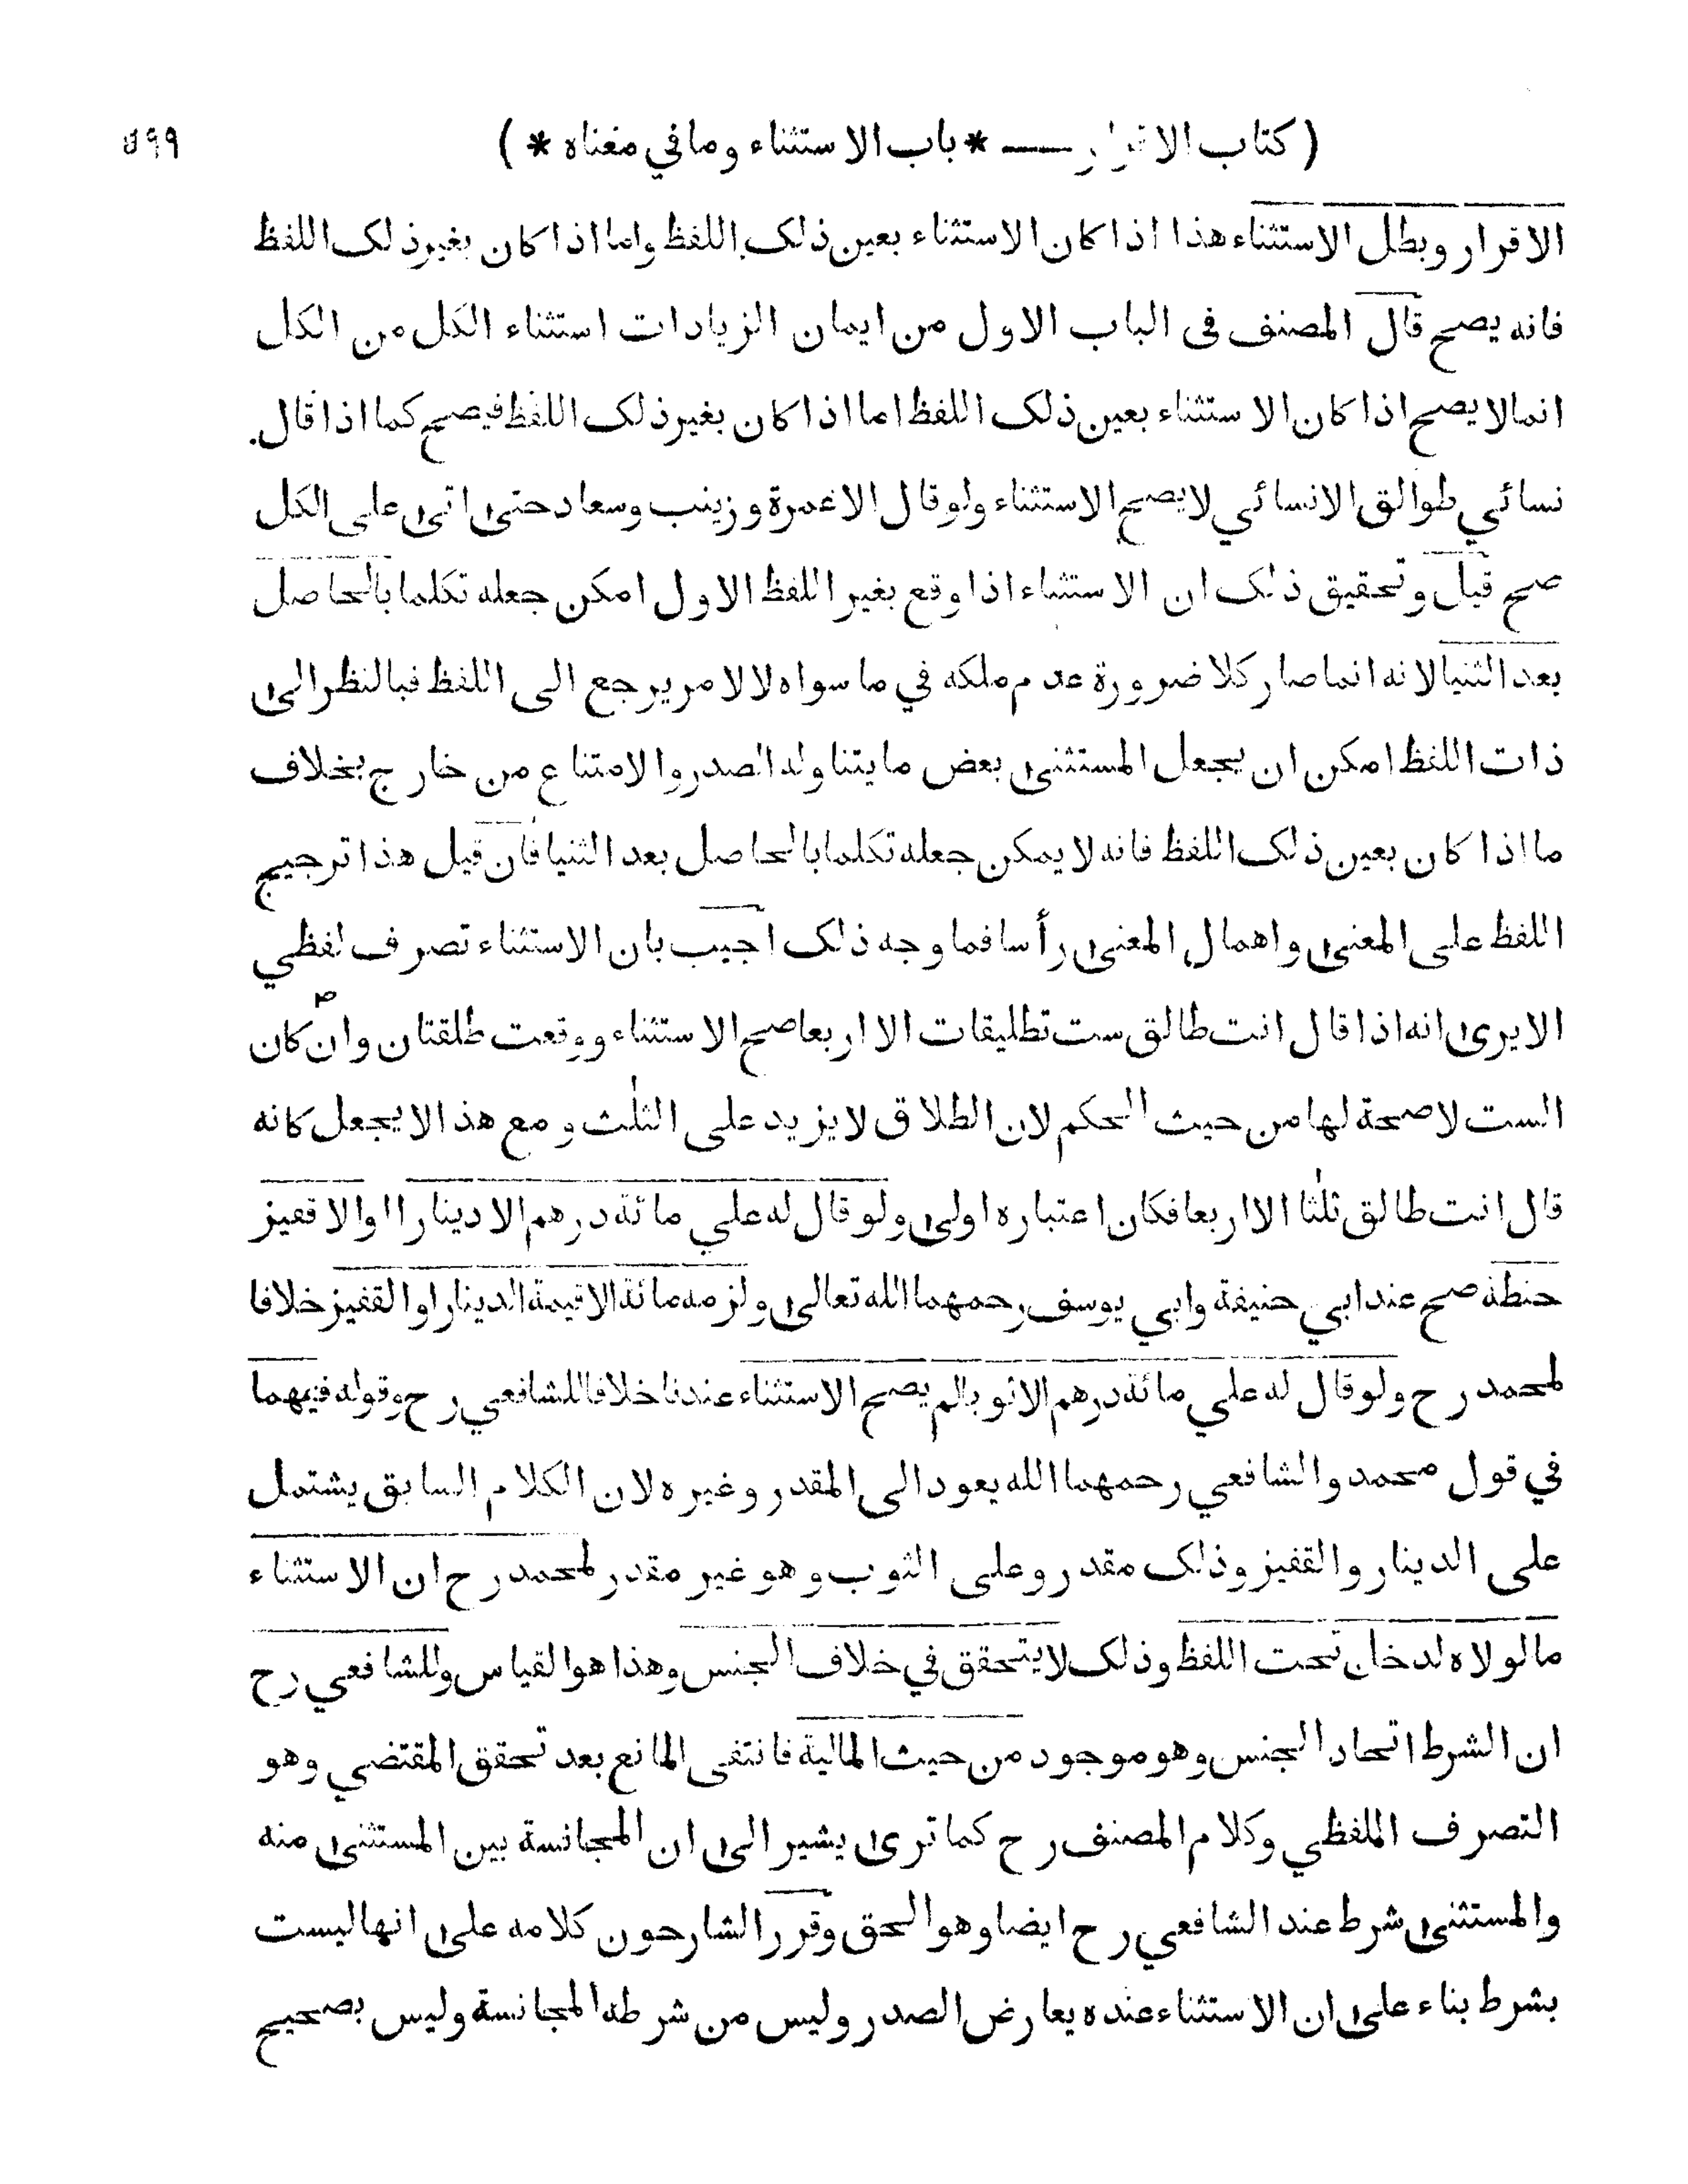 ( كتاب الاقرار — * باب الاستثناء وما في معناه * ) ٥٩٩
الاقرار وبطل الاستثناء هذا اذا كان الاستثناء بعين ذلك اللفظ واما اذا كان بغير ذلك اللفظ
فانه يصح قال المصنف فى الباب الاول من ايمان الزيادات استثناء الكل من الكل
انما لا يصح اذا كان الاستثناء بعين ذلك اللفظ اما اذا كان بغير ذلك اللفظ فيصح كما اذا قال
نسائي طوالق الا نسائي لا يصح الاستثناء ولو قال الا عمرة وزينب وسعاد حتى اتى على الكل
صح قيل وتحقيق ذلك ان الاستثناء اذا وقع بغير اللفظ الاول امكن جعله تكلما بالحاصل
بعد الثنيا لانه انما صار كلا ضرورة عدم ملكه في ما سواه لا لامر يرجع الى اللفظ فبالنظر الى
ذات اللفظ امكن ان يجعل المستثنى بعض ما يتناوله الصدر والامتناع من خارج بخلاف
ما اذا كان بعين ذلك اللفظ فانه لا يمكن جعله تكلما بالحاصل بعد الثنيا فان قيل هذا ترجيح
اللفظ على المعنى واهمال المعنى رأسا فما وجه ذلك اجيب بان الاستثناء تصرف لفظي
الا يرى انه اذا قال انت طالق ست تطليقات الا اربعا صح الاستثناء ووقعت طلقتان وان كان
الست لا صحة لها من حيث الحكم لان الطلاق لا يزيد على الثلث ومع هذا لا يجعل كانه
قال انت طالق ثلثا الا اربعا فكان اعتباره اولى ولو قال له علي مائة درهم الا دينارا او الا قفيز
حنطة صح عند ابي حنيفة وابي يوسف رحمهما الله تعالى ولزمه مائة الا قيمة الدينار او القفيز خلافا
لمحمد رح ولو قال له علي مائة درهم الا ثوبا لم يصح الاستثناء عندنا خلافا للشافعي رح وقوله فيهما
في قول محمد والشافعي رحمهما الله يعود الى المقدر وغيره لان الكلام السابق يشتمل
على الدينار والقفيز وذلك مقدر وعلى الثوب وهو غير مقدر لمحمد رح ان الاستثناء
ما لولاه لدخل تحت اللفظ وذلك لا يتحقق في خلاف الجنس وهذا هو القياس وللشافعي رح
ان الشرط اتحاد الجنس وهو موجود من حيث المالية فانتفى المانع بعد تحقق المقتضي وهو
التصرف اللفظي وكلام المصنف رح كما ترى يشير الى ان المجانسة بين المستثنى منه
والمستثنى شرط عند الشافعي رح ايضا وهو الحق وقرر الشارحون كلامه على انها ليست
بشرط بناء على ان الاستثناء عنده يعارض الصدر وليس من شرطه المجانسة وليس بصحيح